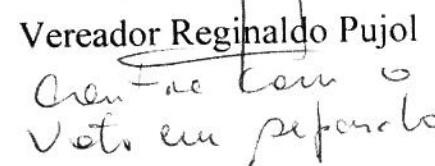 Vereador Reginaldo Pujol
com o
Voto em separado